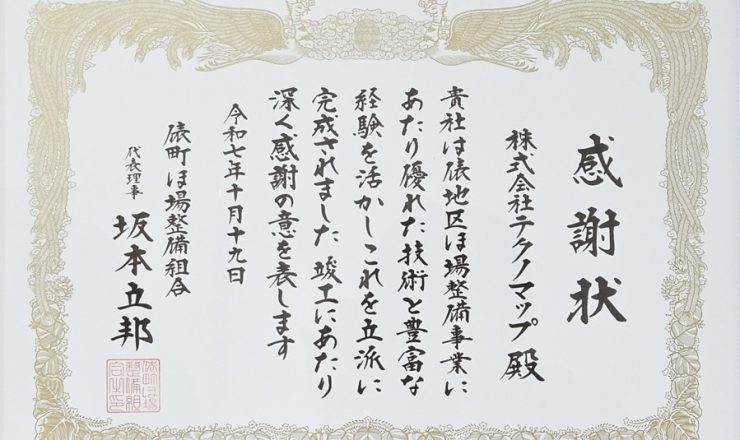 感謝状
株式会社テクノマップ殿
貴社は俵地区ほ場整備事業に
あたり優れた技術と豊富な
経験を活かしこれを立派に
完成されました 竣工にあたり
深く感謝の意を表します
令和七年十月十九日
俵町ほ場整備組合
代表理事 坂本立邦